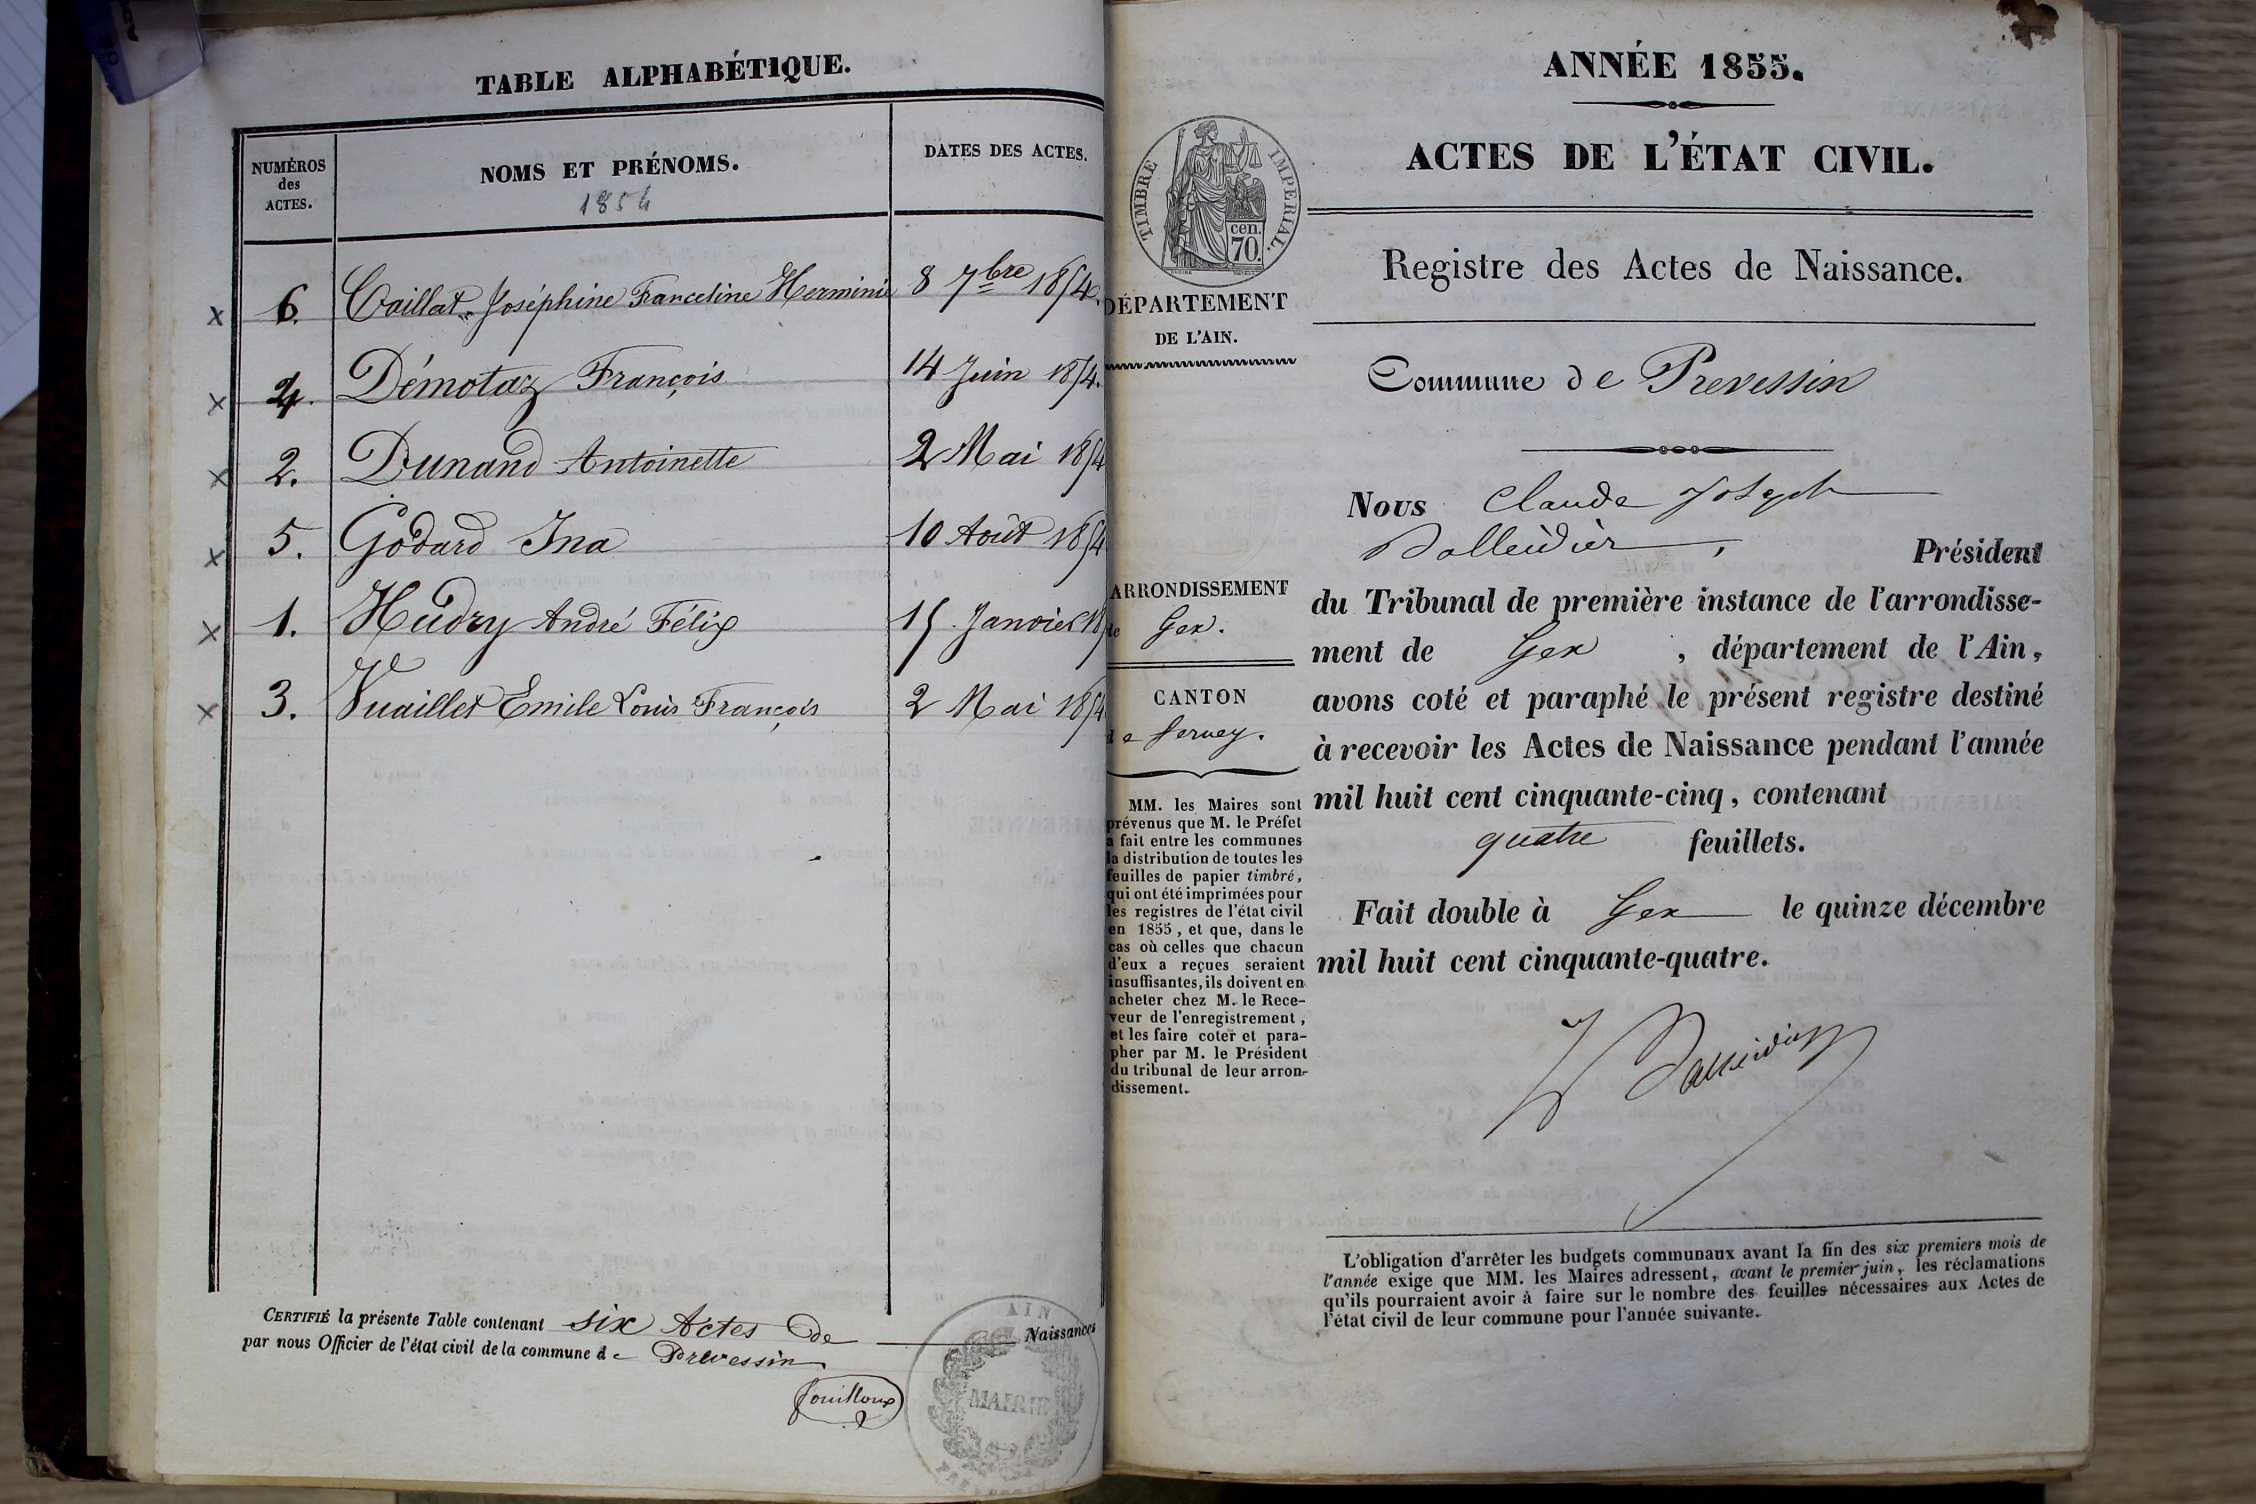 TABLE ALPHABÉTIQUE.
NUMÉROS
des
ACTES.
NOMS ET PRÉNOMS.
1854
DATES DES ACTES.
x 6. Caillat Joséphine Franceline Herminie 8 7bre 1854.
x 4. Démotaz François 14 Juin 1854.
x 2. Dunand Antoinette 2 Mai 1854
x 5. Godard Ina 10 Août 1854
x 1. Hudry André Félix 15 Janvier 18
x 3. Vuaillet Emile Louis François 2 Mai 1854
CERTIFIÉ la présente Table contenant six Actes de Naissances
par nous Officier de l'état civil de la commune de Prévessin
fouilloux
AIN
MAIRIE
ANNÉE 1855.
ACTES DE L'ÉTAT CIVIL.
TIMBRE IMPERIAL.
cen.
70.
Registre des Actes de Naissance.
DÉPARTEMENT
DE L'AIN.
Commune de Prevessin
Nous Claude Joseph
Dalleidier, Président
du Tribunal de première instance de l'arrondisse-
ment de Gex, département de l'Ain,
avons coté et paraphé le présent registre destiné
à recevoir les Actes de Naissance pendant l'année
mil huit cent cinquante-cinq, contenant
quatre feuillets.
Fait double à Gex le quinze décembre
mil huit cent cinquante-quatre.
Dalleidier
ARRONDISSEMENT
de Gex.
CANTON
de ferney.
MM. les Maires sont
prévenus que M. le Préfet
a fait entre les communes
la distribution de toutes les
feuilles de papier timbré,
qui ont été imprimées pour
les registres de l'état civil
en 1855, et que, dans le
cas où celles que chacun
d'eux a reçues seraient
insuffisantes, ils doivent en
acheter chez M. le Rece-
veur de l'enregistrement,
et les faire coter et para-
pher par M. le Président
du tribunal de leur arron-
dissement.
L'obligation d'arrêter les budgets communaux avant la fin des six premiers mois de
l'année exige que MM. les Maires adressent, avant le premier juin, les réclamations
qu'ils pourraient avoir à faire sur le nombre des feuilles nécessaires aux Actes de
l'état civil de leur commune pour l'année suivante.